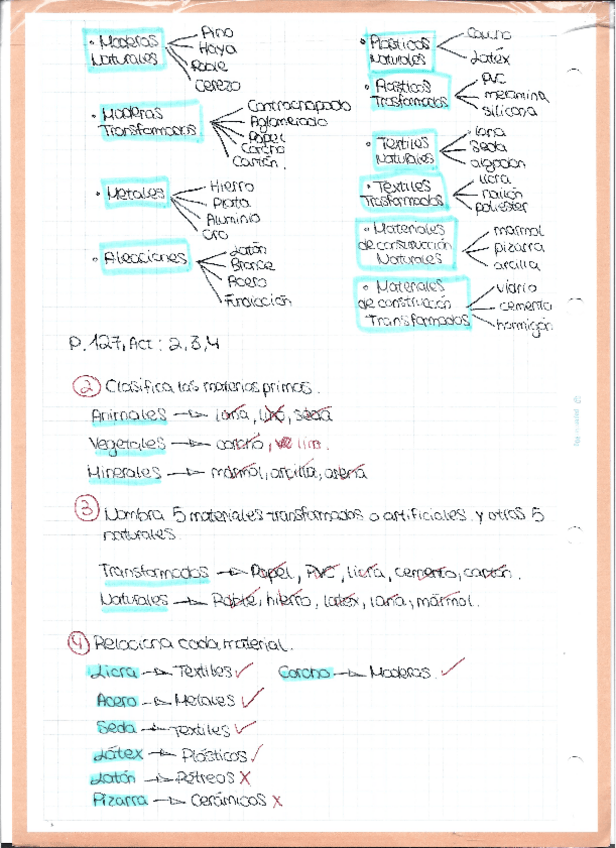 • Maderas Naturales
Pino
Haya
Roble
Cerezo
• Maderas Transformadas
Contrachapado
Aglomerado
Papel
Corcho
Cartón.
• Metales
Hierro
Plata
Aluminio
Oro
• Aleaciones
Latón
Bronce
Acero
Fundación
• Plásticos Naturales
Caucho
Látex
• Plásticos Trasformados
PVC
melamina
silicona
• Textiles Naturales
lana
seda
algodón
• Textiles Trasformados
licra
nailón
poliester
• Materiales de construcción Naturales
marmol
pizarra
arcilla
• Materiales de construcción Transformados
vidrio
cemento
hormigón
P. 127, Act: 2, 3, 4
② Clasifica las materias primas.
Animales → lana, seda
Vegetales → corcho, lino.
Minerales → mármol, arcilla, arena
③ Nombra 5 materiales transformados o artificiales y otros 5
naturales
Transformados → Papel, PVC, licra, cemento, cartón.
Naturales → Roble, hierro, latex, lana, mármol.
④ Relaciona cada material.
Licra → Textiles ✓ Corcho → Maderas. ✓
Acero → Metales ✓
Seda → Textiles ✓
Látex → Plásticos ✓
Latón → Pétreos X
Pizarra → Cerámicos X